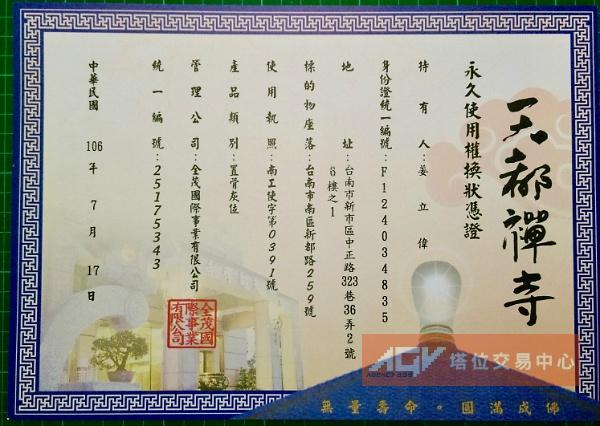 天都禪寺
永久使用權換狀憑證
持有人：姜立偉
身份證統一編號：F124034835
地址：台南市新市區中正路323巷36弄2號
6樓之1
標的物座落：台南市南區新都路259號
使用執照：南工使字第0391號
產品類別：置骨灰位
管理公司：全茂國際事業有限公司
統一編號：25175343
中華民國 106 年 7 月 17 日
全茂國際事業有限公司
無量壽命。圓滿成佛
AGV 塔位交易中心